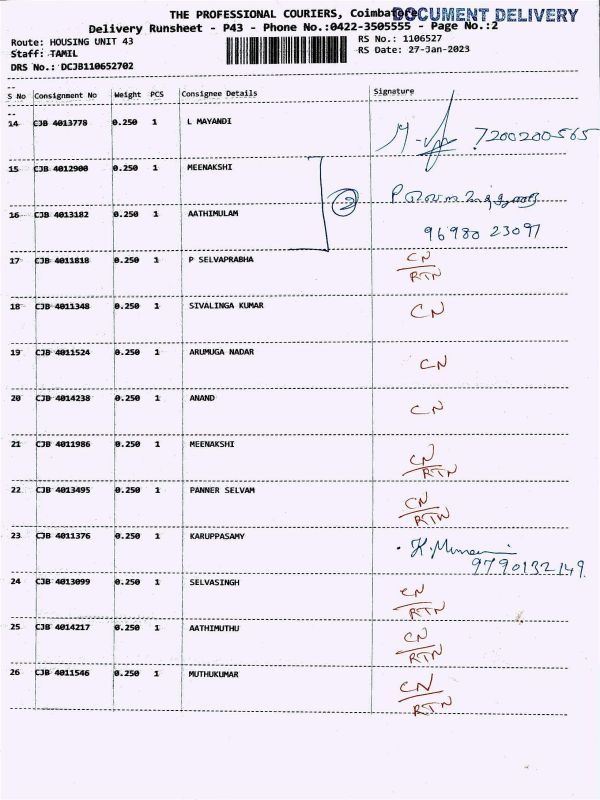 THE PROFESSIONAL COURIERS, Coimbatore
DOCUMENT DELIVERY
Delivery Runsheet - P43 - Phone No.:0422-3505555 - Page No.:2
Route: HOUSING UNIT 43 RS No.: 1106527
Staff: TAMIL RS Date: 27-Jan-2023
DRS No.: DCJB110652702
S No Consignment No Weight PCS Consignee Details Signature
14 CJB 4013778 0.250 1 L MAYANDI 7200200565
15 CJB 4012900 0.250 1 MEENAKSHI
16 CJB 4013182 0.250 1 AATHIMULAM 2 96980 23097
17 CJB 4011818 0.250 1 P SELVAPRABHA CN
RTN
18 CJB 4011348 0.250 1 SIVALINGA KUMAR CN
19 CJB 4011524 0.250 1 ARUMUGA NADAR CN
20 CJB 4014238 0.250 1 ANAND CN
21 CJB 4011986 0.250 1 MEENAKSHI CN
RTN
22 CJB 4013495 0.250 1 PANNER SELVAM CN
RTN
23 CJB 4011376 0.250 1 KARUPPASAMY
9790132149
24 CJB 4013099 0.250 1 SELVASINGH CN
RTN
25 CJB 4014217 0.250 1 AATHIMUTHU CN
RTN
26 CJB 4011546 0.250 1 MUTHUKUMAR CN
RTN